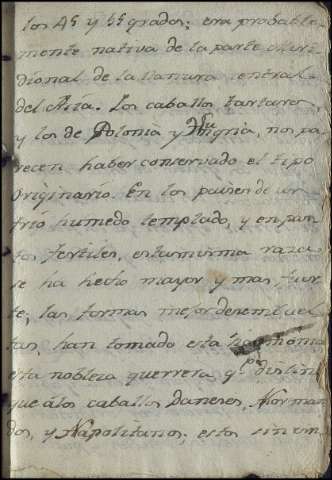 los 45 y 55 grados; era probable
mente nativa de la parte Meri
dional de la llanura central
del Asia. Los caballos Tartaros,
y los de Polonia y Ungria, nos pa
recen haber conservado el tipo
originario. En los paises de un
frio humedo templado, y en pun
tos fertiles, esta misma raza
se ha hecho mayor y mas fuer
te; las formas mejor desembuel
tas, han tomado esta harmonia
esta nobleza guerrera qe. distin
que álos caballos Daneses, Norman
dos, y Napolitanos; estos sin em